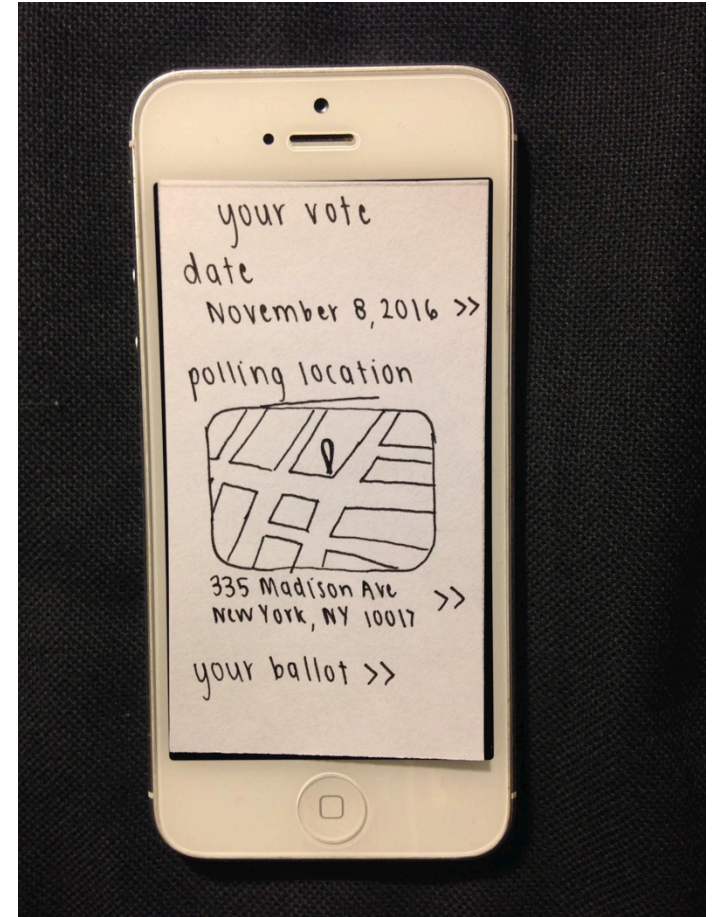 your vote
date
November 8, 2016 >>
polling location
335 Madison Ave
New York, NY 10017 >>
your ballot >>